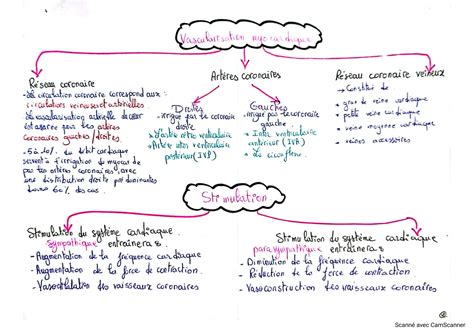 Vascularisation myocardique
Réseau coronaire
- La circulation coronaire correspond aux :
circulations veineuses et artérielles
- La vascularisation artérielle du cœur
est assurée par les artères
coronaires gauches / droites.
- 5 à 10% du débit cardiaque
servent à irrigation du myocarde
par les artères coronaires, avec
une distribution droite
60% des cas.
Artères coronaires
Droites
- irrigué par le coronaire
droite
ventriculaire
Artère inter ventriculaire
postérieur (IVP)
Gauches
- irrigué par le coronaire
gauche
Inter ventriculaire
antérieur (IVA)
Réseau coronaire veineux
- Constitué de
- grande veine cardiaque
- petite veine cardiaque
- veine moyenne cardiaque
- veines accessoires
Stimulation
Stimulation du système cardiaque
Sympathique entraînera
- Augmentation de la fréquence cardiaque
- Augmentation de la force de contraction
- Vasodilatation des vaisseaux coronaires
Stimulation du système cardiaque
parasympathique entraînera
- Diminution de la fréquence cardiaque
- Réduction de la force de contraction
- Vasoconstruction des vaisseaux coronaires
Scanné avec CamScanner